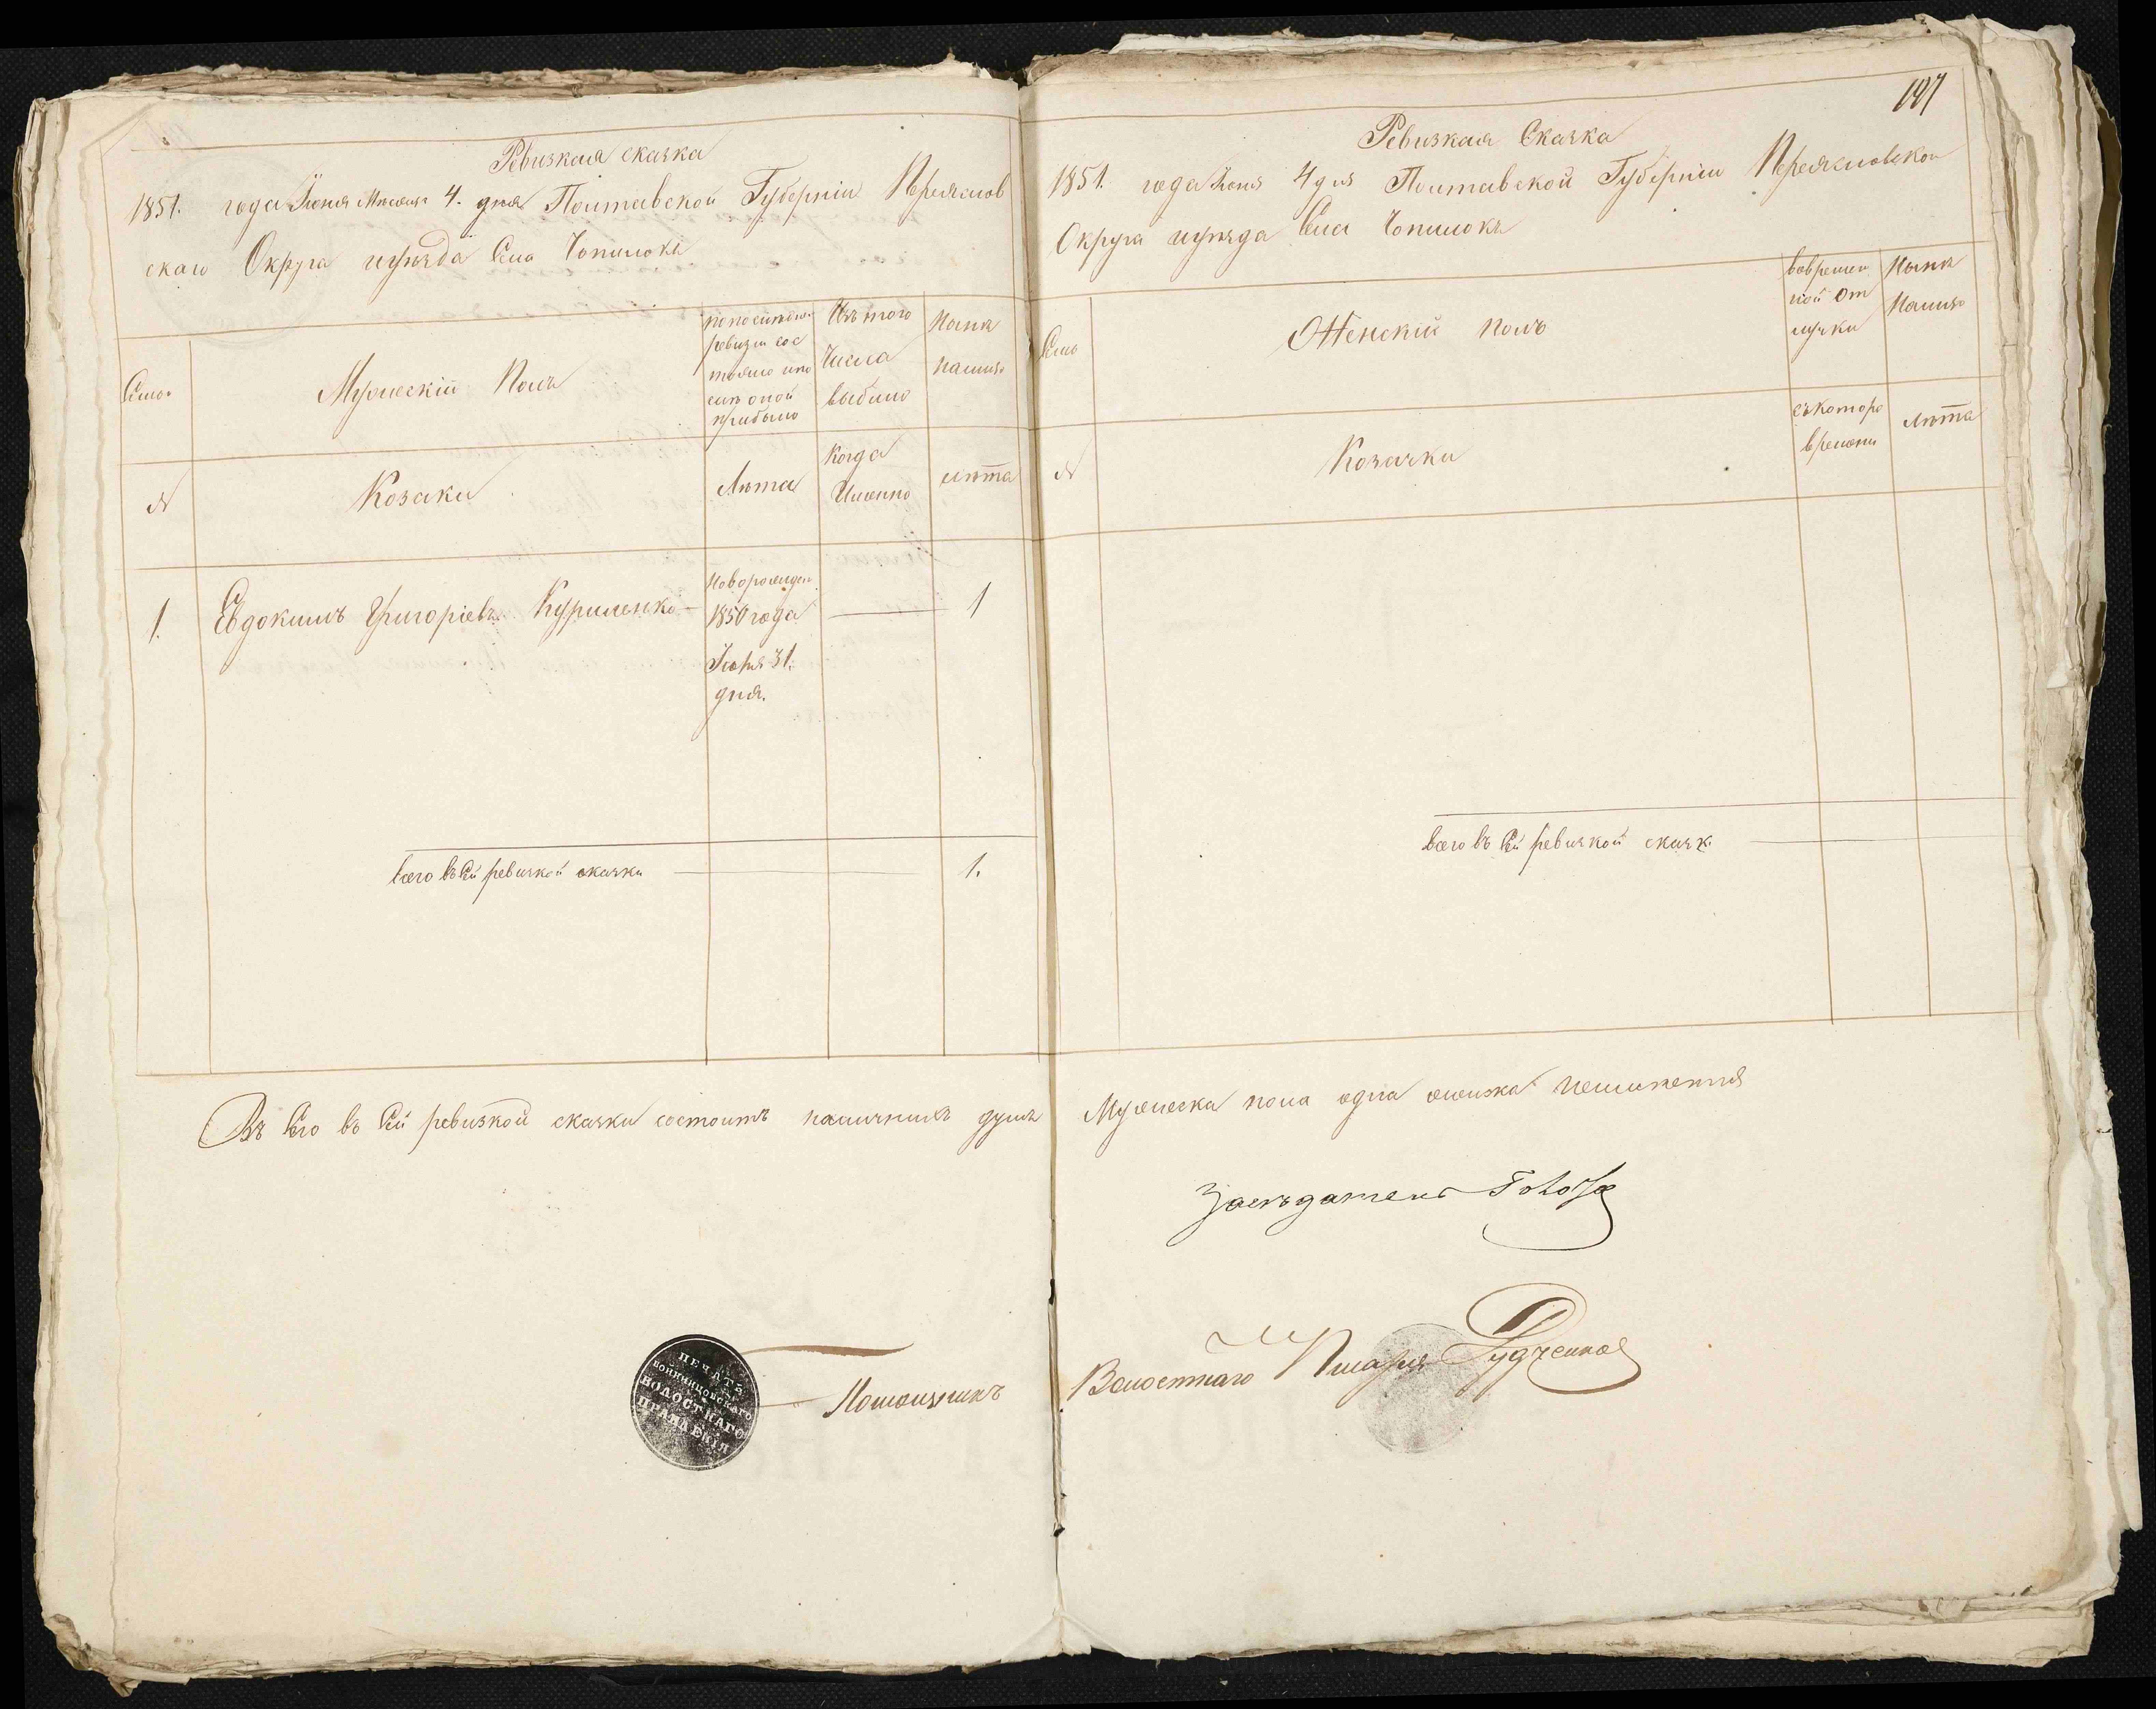 Ревизкая сказка
1851. года Іюня Месяца 4. дня Полтавской Губерніи Переяслов
скаго Округа иуѣзда Села Чопилокъ
Семьи
Мужескій Полъ
попоследн.
ревизіи сос
тояло ипо
слѣ оной
прибыло
Изъ того
Числа
выбыло
Нынѣ
налицо
№
Козаки
Лѣта
Когда
Именно
лѣта
1.
Евдокимъ Григоріевъ Куриленко
Новорожден.
1850 года
31.
дня.
1
всего въ сей ревизкой сказки
1.
197
Ревизкая Сказка
1851. года Іюня 4 дня Полтавской Губерніи Переясловскои
Округа иуѣзда Села Чопилокъ
Семьи
Женскій полъ
вовремен
ной От
лучки
Нынѣ
Налицо
№
Козачки
съкоторо
времени
лѣта
всего въ сей ревизкой сказк.
Въ сего въ сей ревизкой сказки состоитъ наличныхъ душъ Мужеска пола одна
Засѣдатель
ПЕЧАТЬ
ВОЙНИНЦОВСКАГО
ВОЛОСТНАГО
ПРАВЛЕНІЯ
Помощникъ Волостнаго Писаря Рудченко